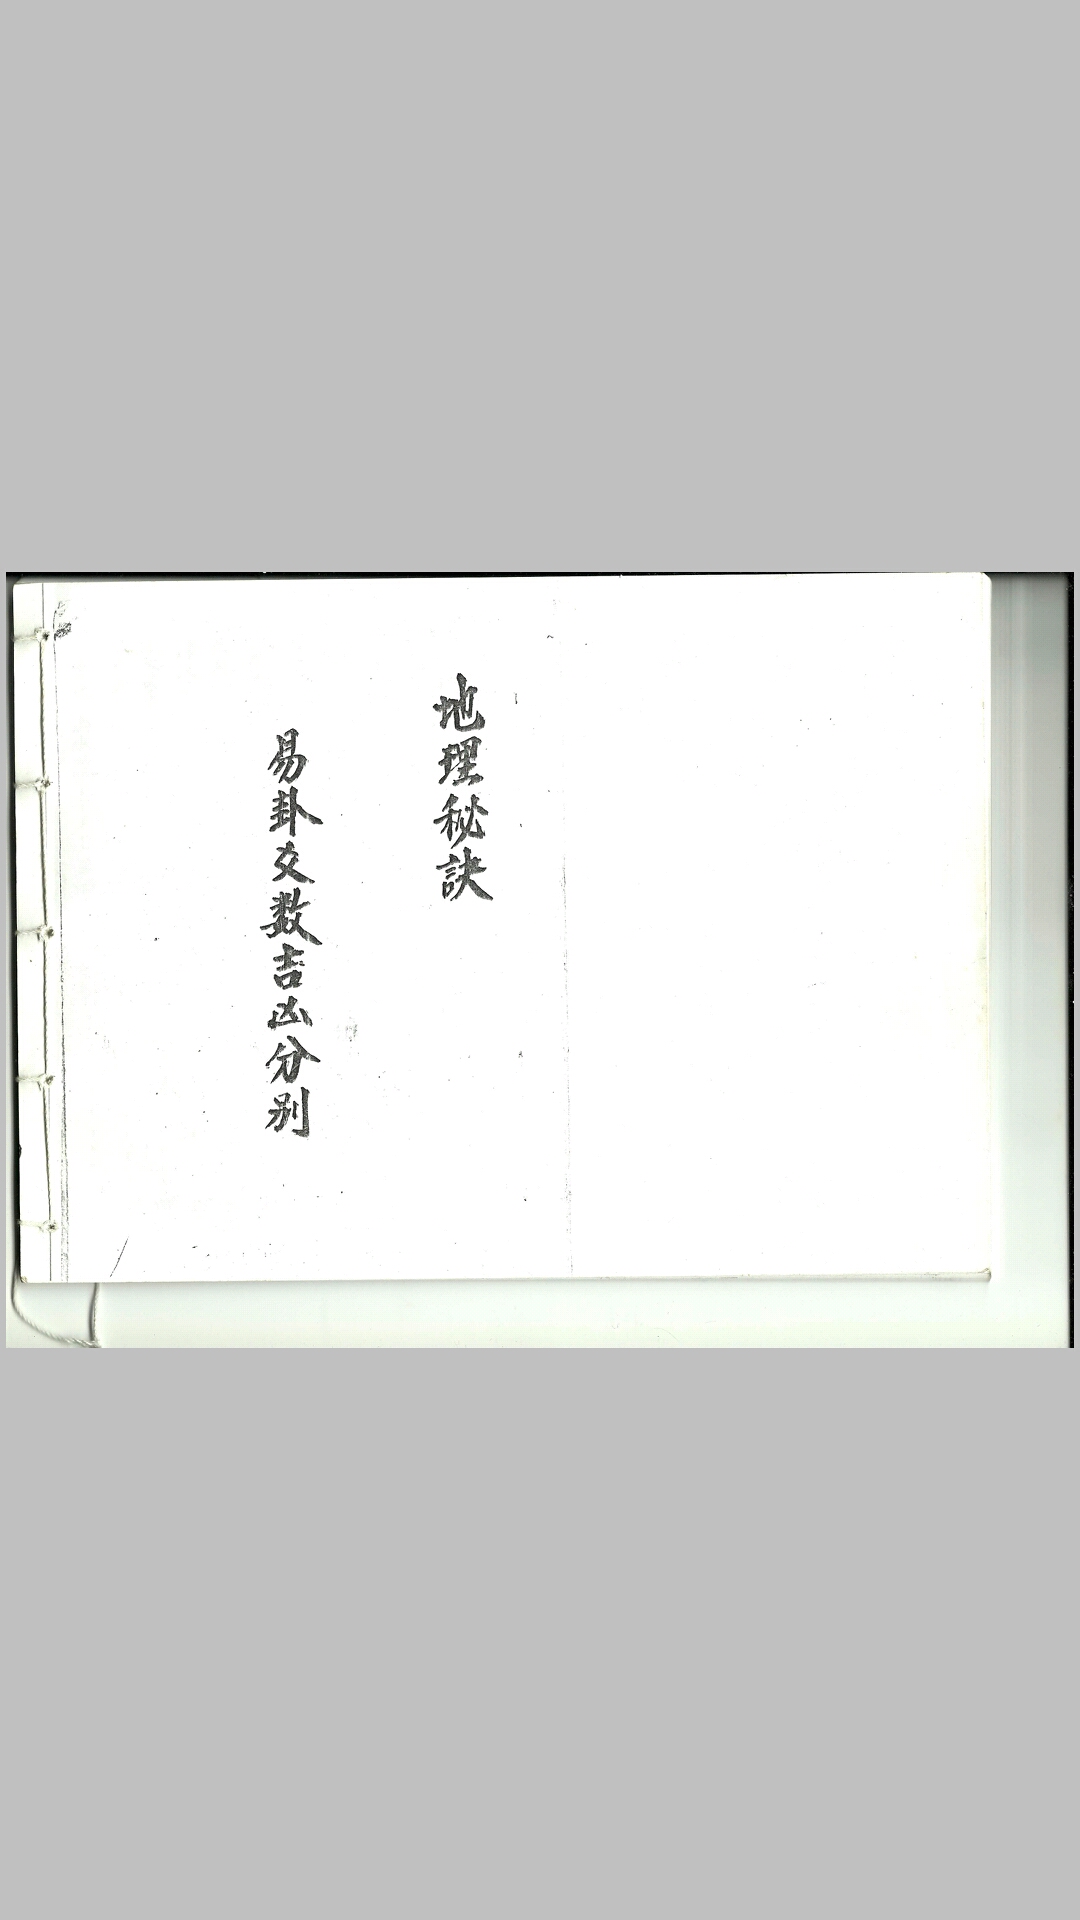 地理秘訣
易卦爻数吉凶分别